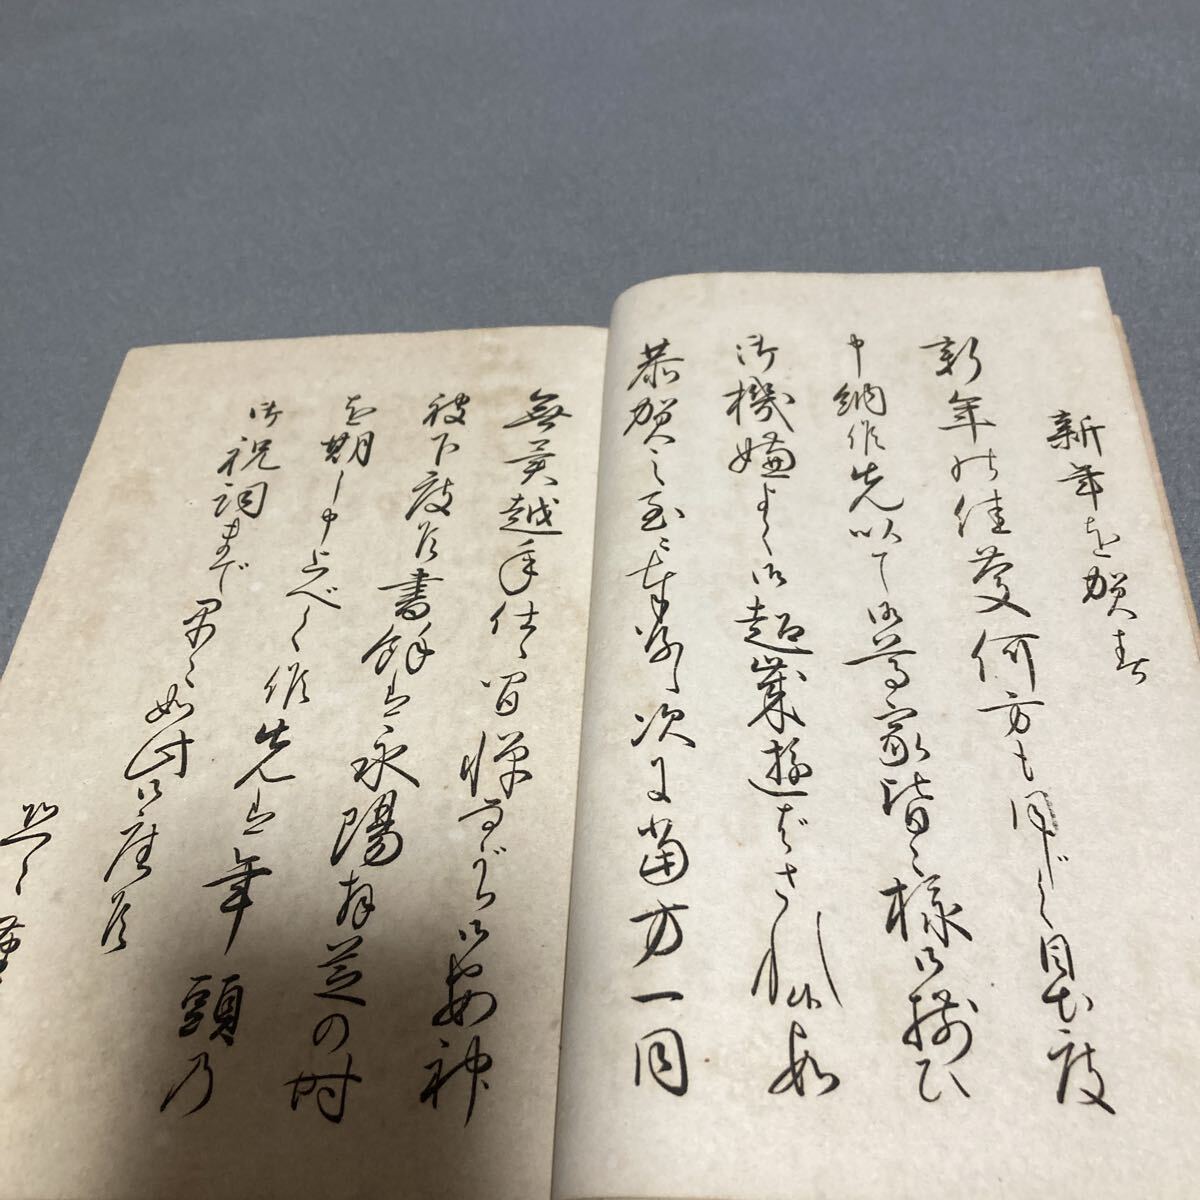 新年を賀す
新年の佳慶何方も同じく目出度
申納候先以て御尊家皆々様御揃ひ
御機嫌よく御超歳遊ばされ候段
恭賀之至に奉存候次に当方一同
無異越年仕候間憚ながら御安神
被下度候書餘は永陽拝芝の時
を期し申上べく候先は年頭乃
御祝詞まで早々如此御座候
恐々謹